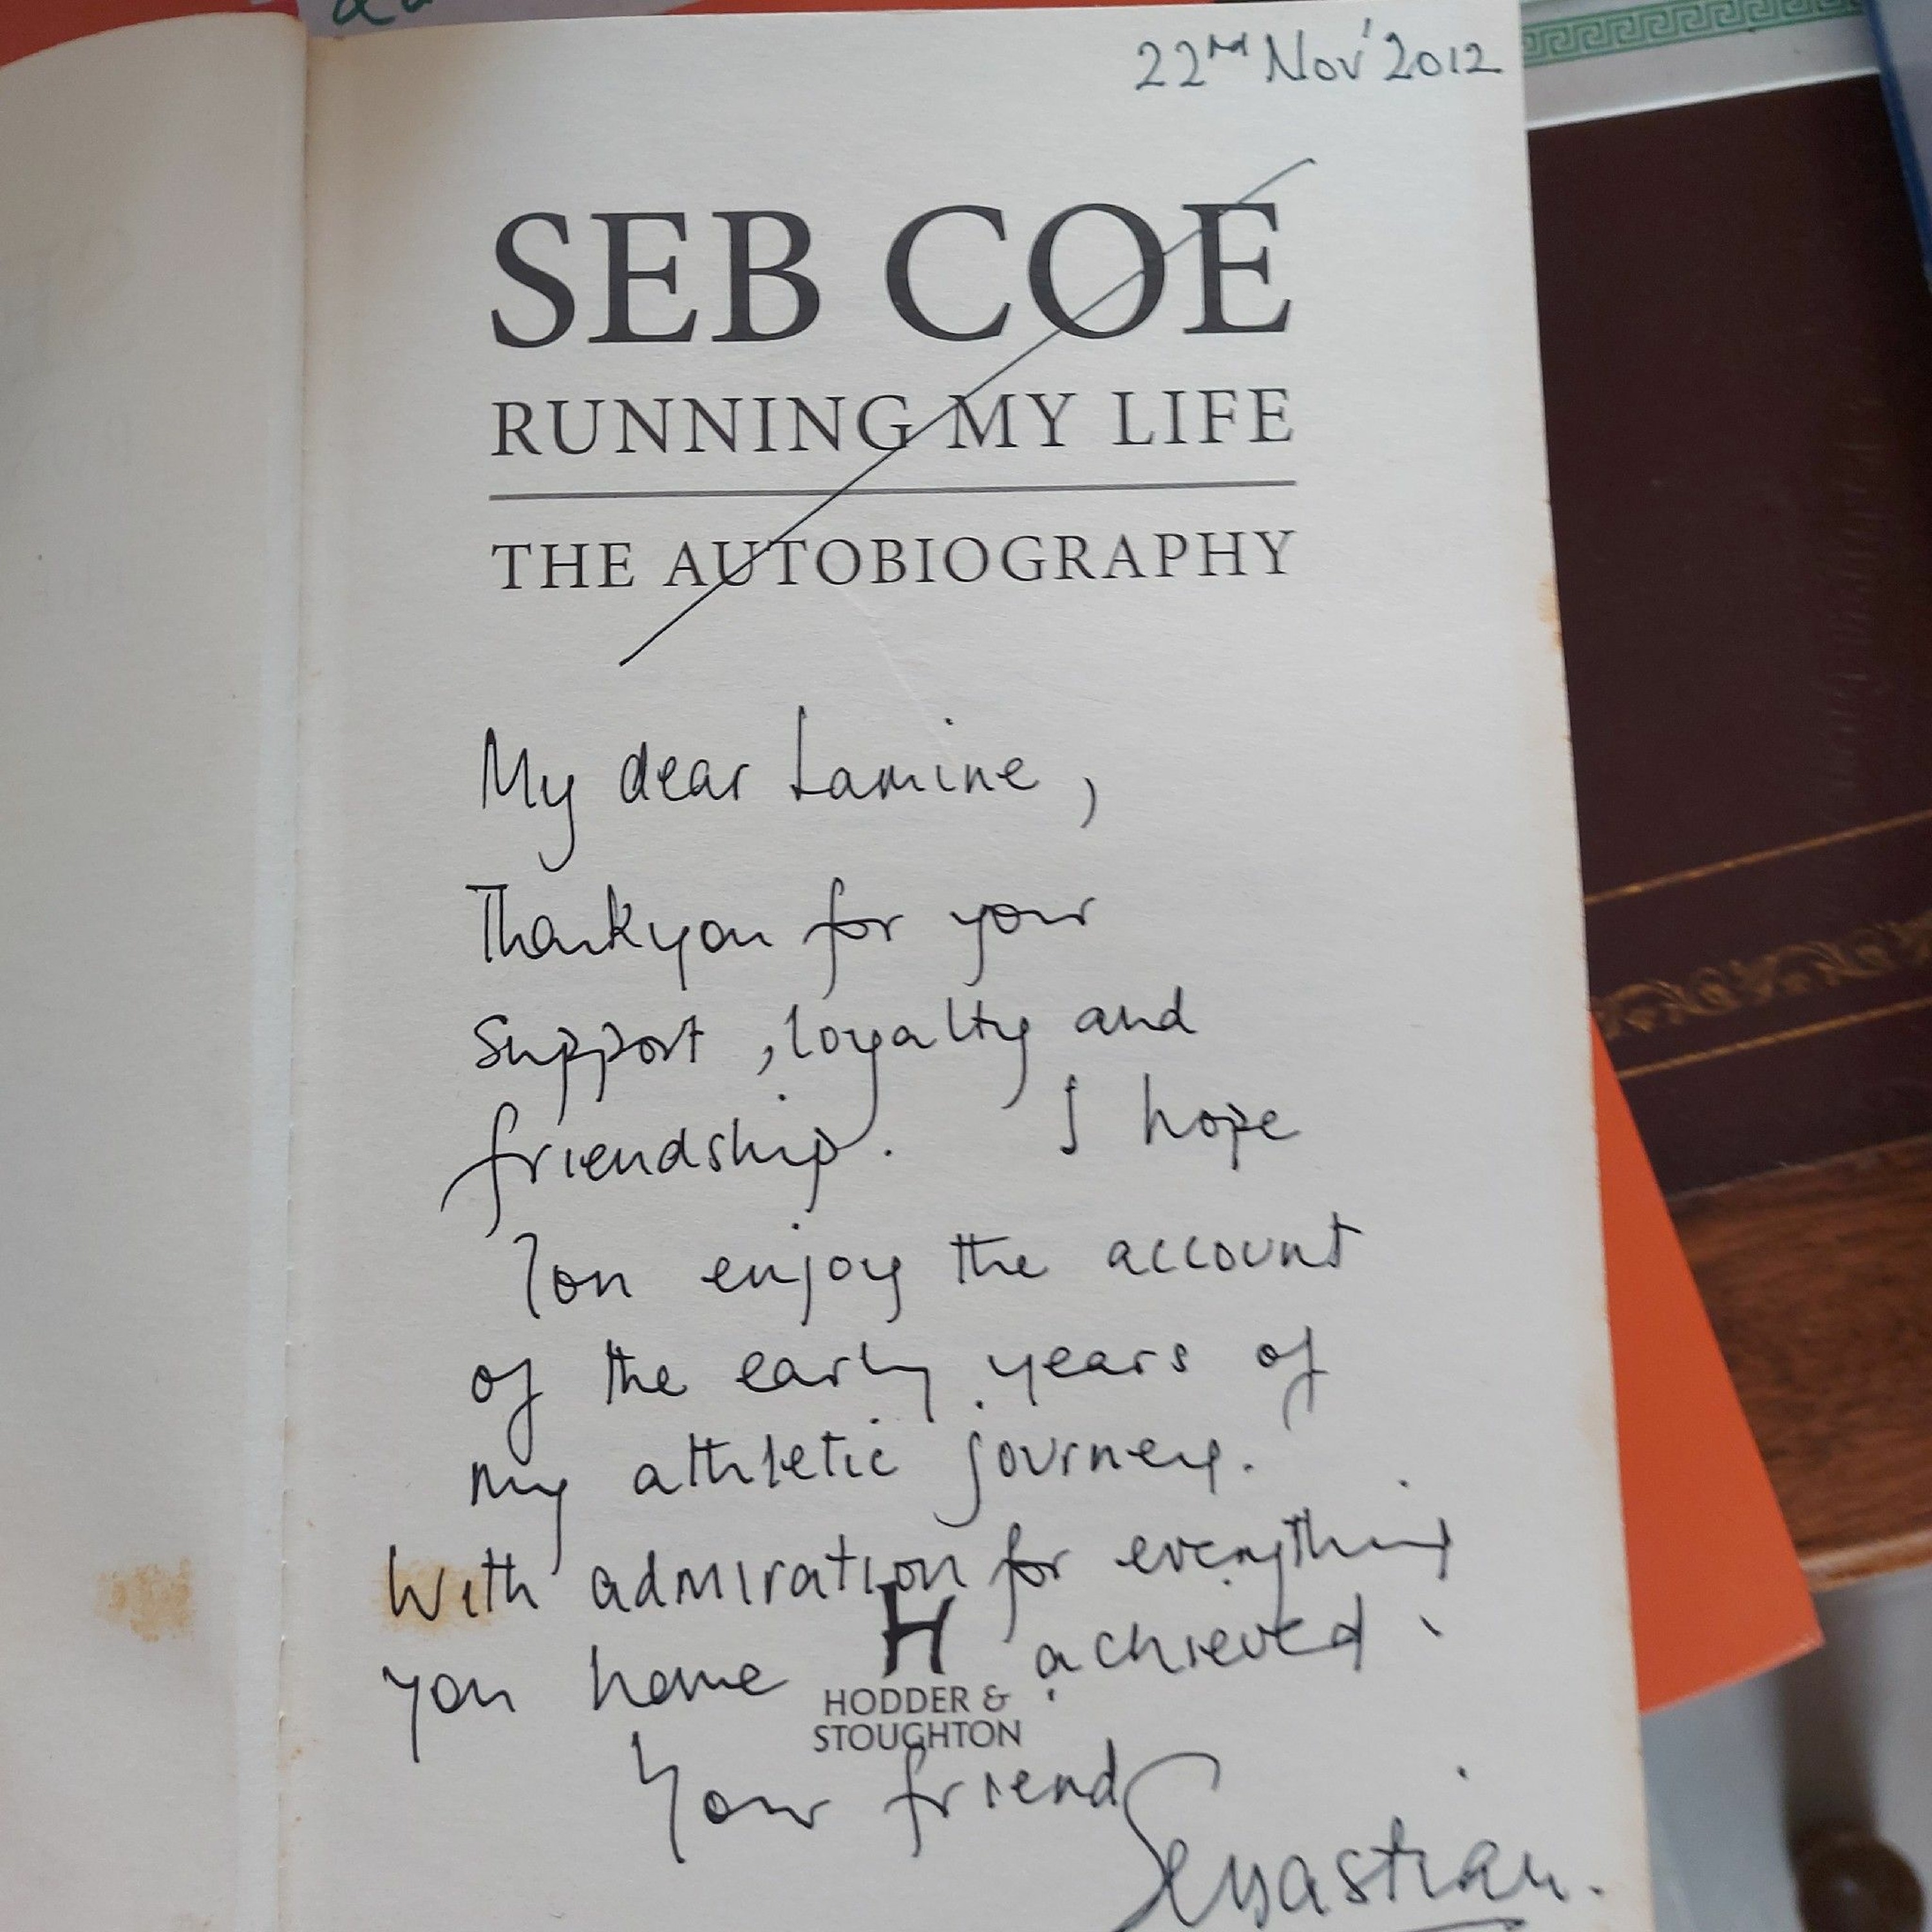 22nd Nov' 2012
SEB COE
RUNNING MY LIFE
THE AUTOBIOGRAPHY
My dear Lamine,
Thankyou for your
support, loyalty and
friendship. I hope
You enjoy the account
of the early years of
my athletic journey.
With admiration for everything
you have achieved.
H
HODDER &
STOUGHTON
Your friend
Sebastian.